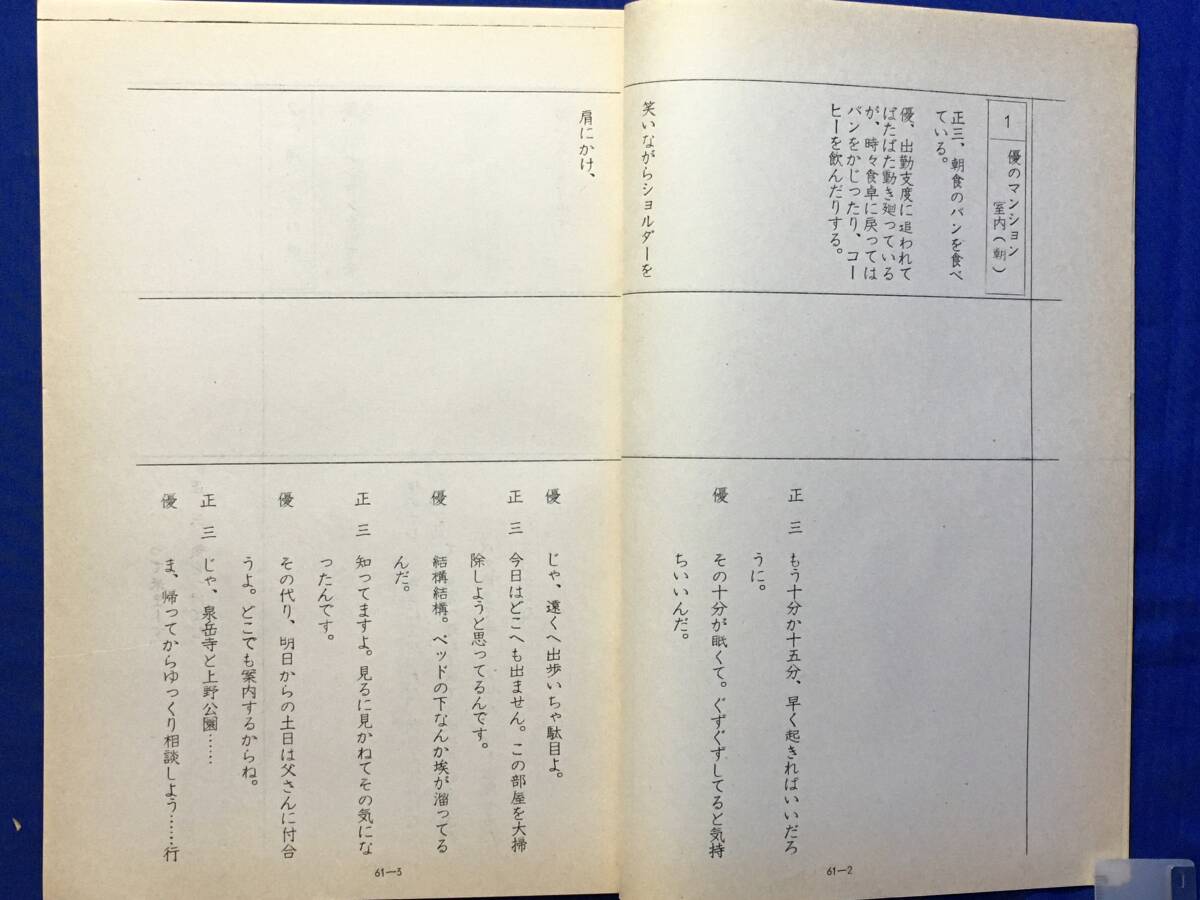 1
優のマンション
室内(朝)
正三、朝食のパンを食べ
ている。
優、出勤支度に追われて
ばたばた動き廻っている
が、時々食卓に戻っては
パンをかじったり、コー
ヒーを飲んだりする。
笑いながらショルダーを
正三 もう十分か十五分、早く起きればいいだろ
うに。
優 その十分が眠くて。ぐずぐずしてると気持
ちいいんだ。
61—2
肩にかけ、
優 じゃ、遠くへ出歩いちゃ駄目よ。
正三 今日はどこへも出ません。この部屋を大掃
除しようと思ってるんです。
優 結構結構。ベッドの下なんか埃が溜ってる
んだ。
正三 知ってますよ。見るに見かねてその気にな
ったんです。
優 その代り、明日からの土日は父さんに付合
うよ。どこでも案内するからね。
正三 じゃ、泉岳寺と上野公園……
優 ま、帰ってからゆっくり相談しよう……行
61—3